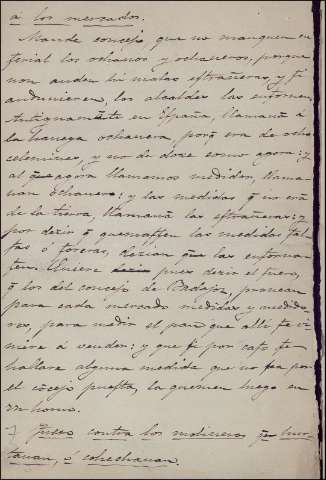 á los mercados.
Mande concejo que no manquen en
ferial los ochauos y ochaueros, porque
non anden hi malas estrañeras, y si
andunieren, los alcaldes las enfornen
Antiguamente en España, llamauā á
la hanega ochauera porq̄ era de ocho
celemines, y no de doze como agora: y
al q̄ agora llamamos medidor, llama-
uan Echauero: y las medidas q̄ no erā
de la tierra, llamauā las estrañeras: y
por dezir q̄ quemassen las medidas fal-
sas ó foreras, dezian que las enforna-
sen. Quiere pues dezir el fuero,
q̄ los del concejo de Badajoz, prouean
para cada mercado medidas y medido-
res, para medir el pan que alli se vi-
niere á vender: y que si por caso se
hallare alguna medida que no sea por
el cōcejo puesta, la quemen luego en
vn horno.
Fuero contra los molineros q̄ hur-
tauan, ó cohechauan.